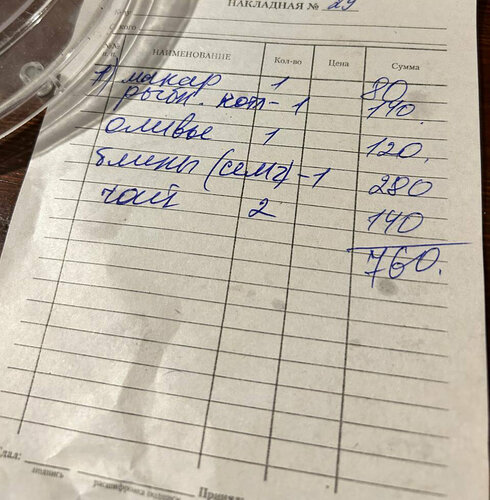 НАКЛАДНАЯ № 29
НАИМЕНОВАНИЕ Кол-во Цена Сумма
1) макар 1 80
рыбн. кот - 1 140.
оливье 1 120.
блины (семг) - 1 280
чай 2 140
760.
подпись расшифровка подписи